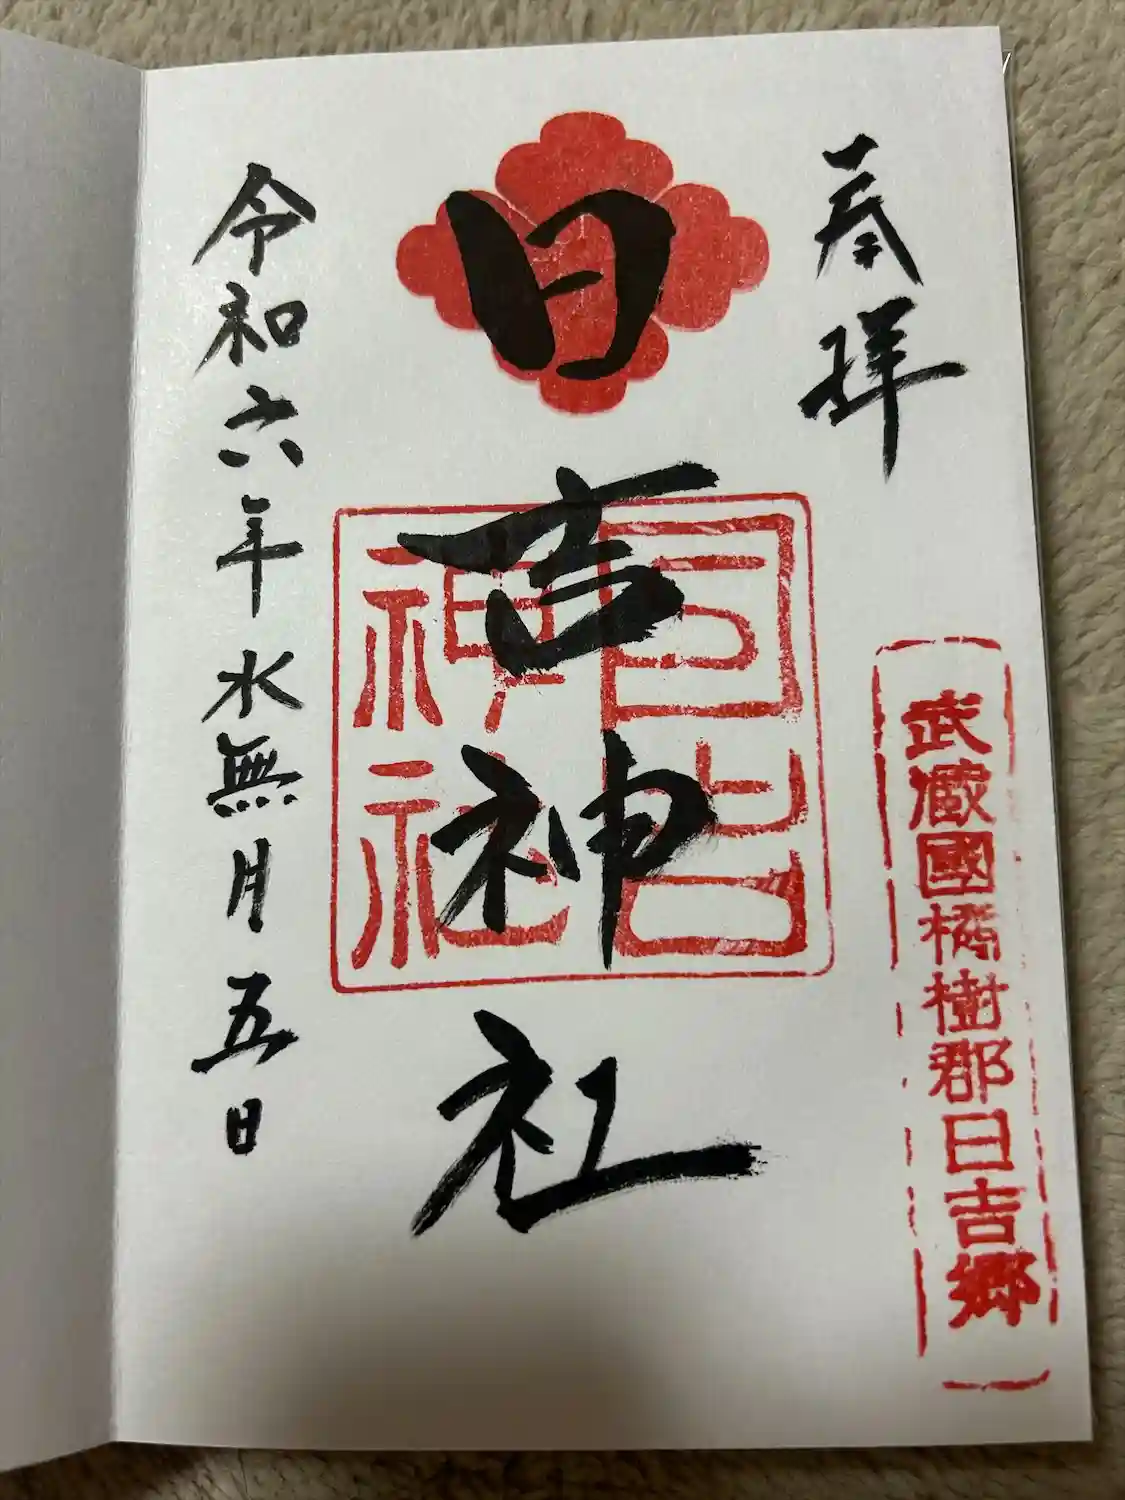 奉拝
武蔵國橘樹郡日吉郷
日吉神社
日吉
神社
令和六年水無月五日